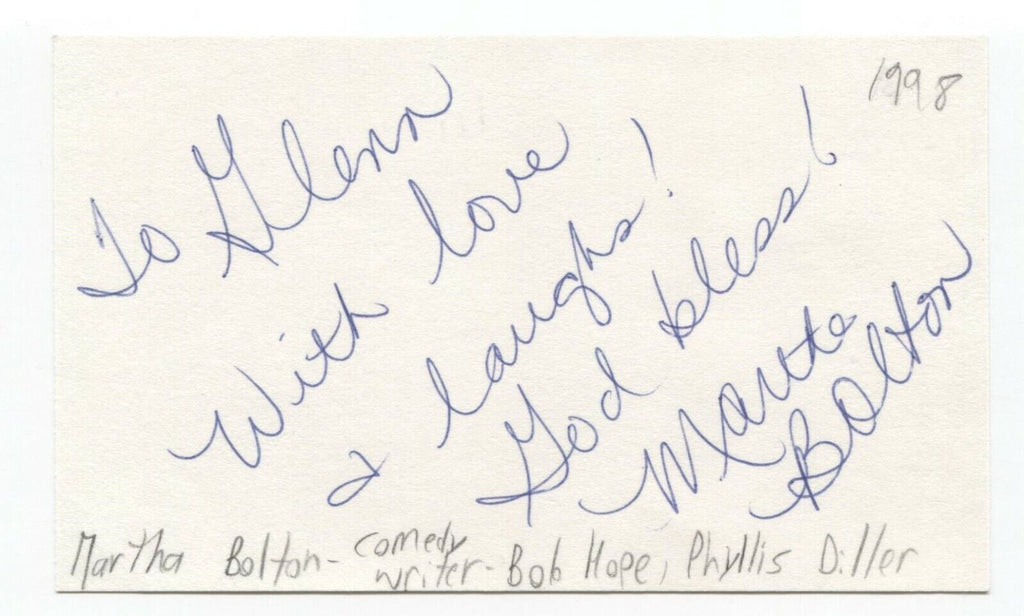 1998
To Glenn
With love
& laughs!
God bless!
Martha
Bolton
Martha Bolton- comedy writer- Bob Hope, Phyllis Diller